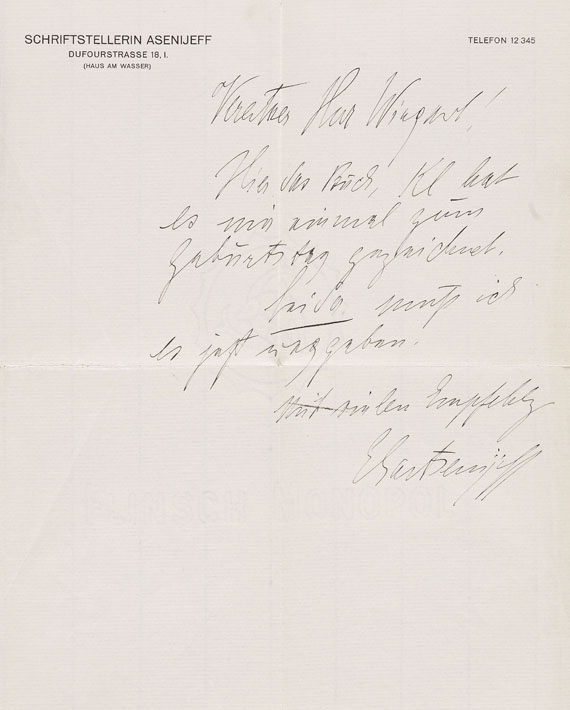 SCHRIFTSTELLERIN ASENIJEFF
DUFOURSTRASSE 18, I.
(HAUS AM WASSER)
TELEFON 12 345
Verehrter Herr Wiegand!
Hier das Buch, Kl hat
es mir einmal zum
Geburtstag gezeichnet.
Leider muß ich
es jetzt weggeben.
Mit vielen Empfehlg
Elsa Asenijeff